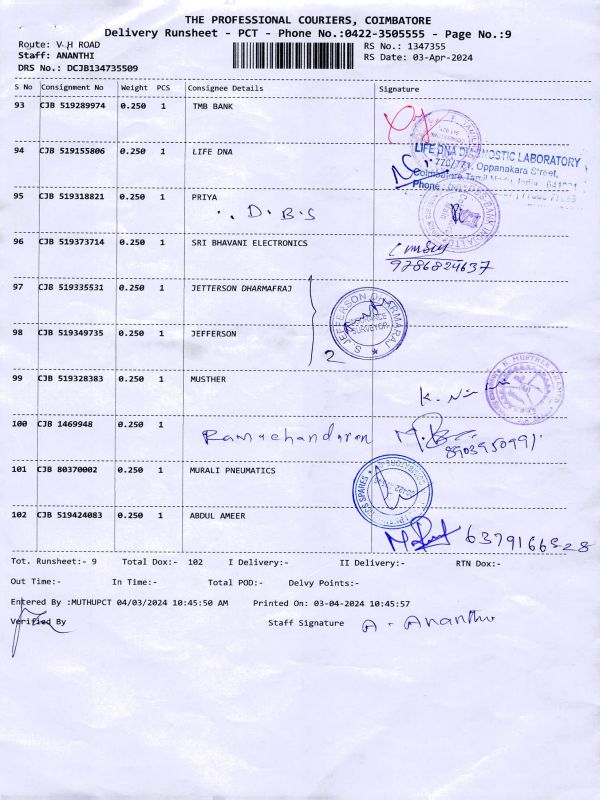 THE PROFESSIONAL COURIERS, COIMBATORE
Delivery Runsheet - PCT - Phone No.:0422-3505555 - Page No.:9
Route: V H ROAD RS No.: 1347355
Staff: ANANTHI RS Date: 03-Apr-2024
DRS No.: DCJB134735509
S No Consignment No Weight PCS Consignee Details Signature
93 CJB 519289974 0.250 1 TMB BANK
94 CJB 519155806 0.250 1 LIFE DNA
LIFE DNA DIAGNOSTIC LABORATORY
770/771, Oppanakara Street,
Coimbatore, Tamil Nadu, India
Phone :
95 CJB 519318821 0.250 1 PRIYA
D.B.S
96 CJB 519373714 0.250 1 SRI BHAVANI ELECTRONICS
9786824637
97 CJB 519335531 0.250 1 JETTERSON DHARMAFRAJ
S. JEFFERSON DHARMARAJ
SURVEYOR
98 CJB 519349735 0.250 1 JEFFERSON
2
99 CJB 519328383 0.250 1 MUSTHER
K.
100 CJB 1469948 0.250 1
Ramachandaran 8903950991
101 CJB 80370002 0.250 1 MURALI PNEUMATICS
SPARES
102 CJB 519424083 0.250 1 ABDUL AMEER
6379166528
Tot. Runsheet:- 9 Total Dox:- 102 I Delivery:- II Delivery:- RTN Dox:-
Out Time:- In Time:- Total POD:- Delvy Points:-
Entered By :MUTHUPCT 04/03/2024 10:45:50 AM Printed On: 03-04-2024 10:45:57
Verified By Staff Signature A - Ananthi